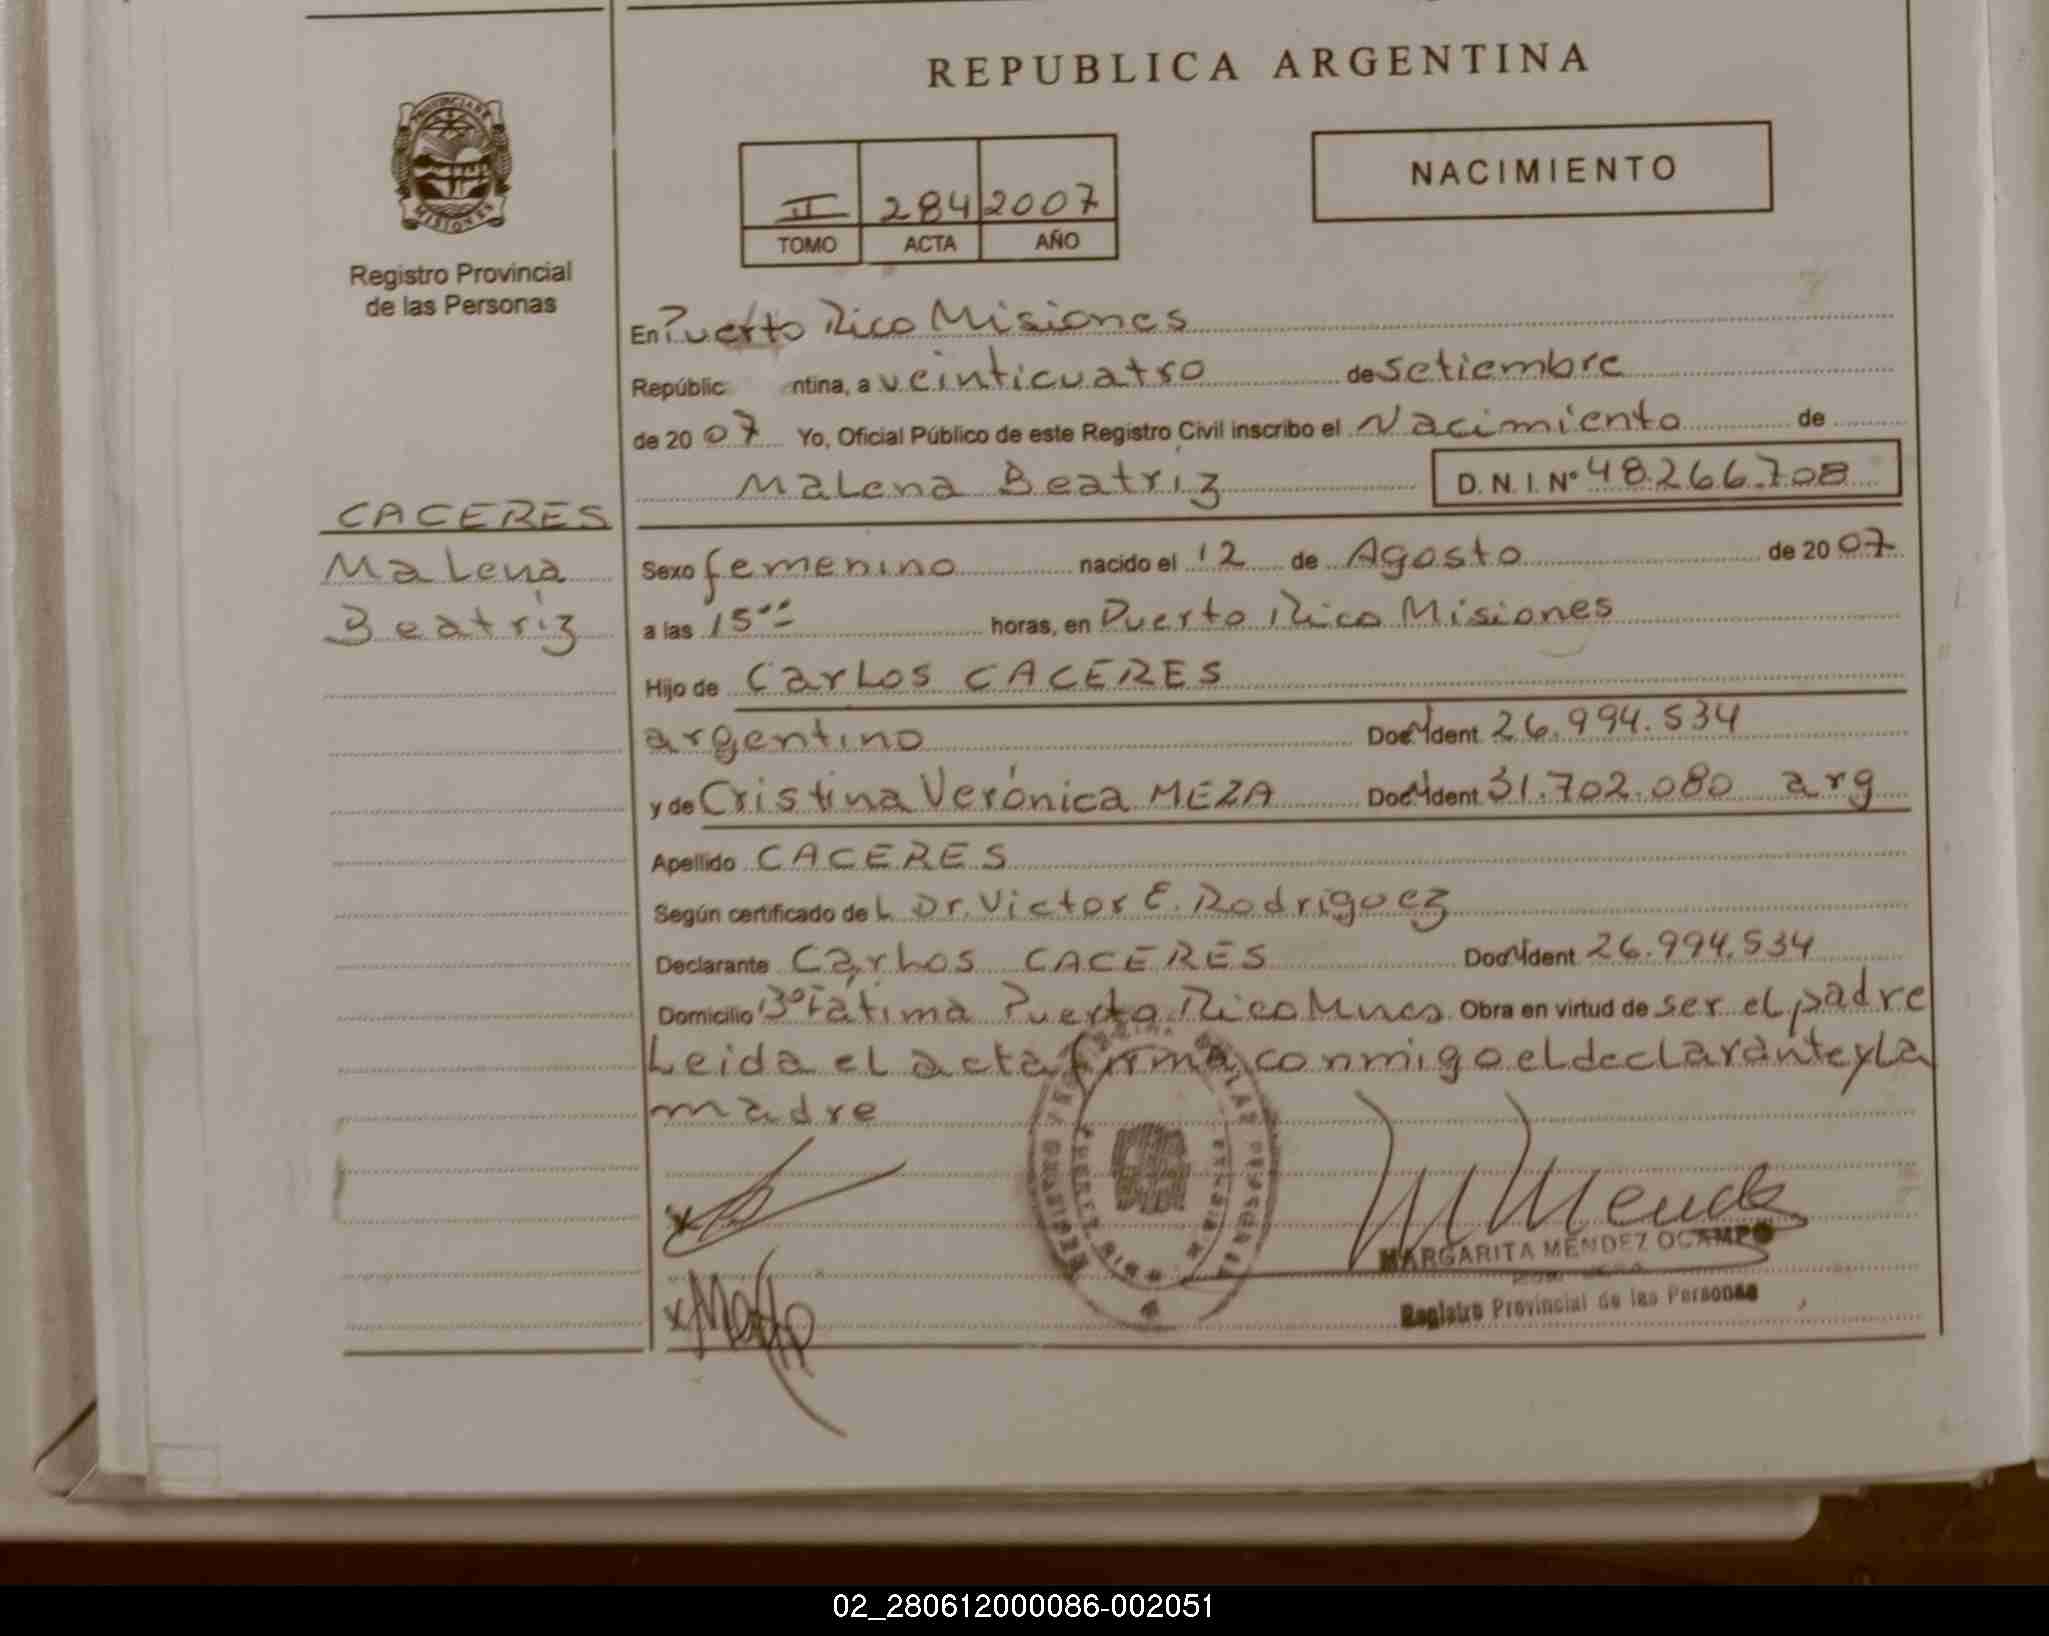 REPUBLICA ARGENTINA
PROVINCIA DE
MISIONES
Registro Provincial
de las Personas
II 284 2007
TOMO ACTA AÑO
NACIMIENTO
En Puerto Rico Misiones
Repúblic ntina, a veinticuatro de setiembre
de 2007 Yo, Oficial Público de este Registro Civil inscribo el Nacimiento de
Malena Beatriz D.N.I. Nº 48.266.708
CACERES
Malena
Beatriz
Sexo femenino nacido el 12 de Agosto de 2007
a las 15 horas, en Puerto Rico Misiones
Hijo de Carlos CACERES
argentino Ident 26.994.534
y de Cristina Verónica MEZA Ident 31.702.080 arg
Apellido CACERES
Según certificado del Dr. Victor E. Rodriguez
Declarante Carlos CACERES Ident 26.994.534
Domicilio Bº Fátima Puerto Rico Mnes Obra en virtud de ser el padre
Leida el acta firma conmigo el declarante y la
madre
MARGARITA MENDEZ OCAMPO
Registro Provincial de las Personas
02_280612000086-002051